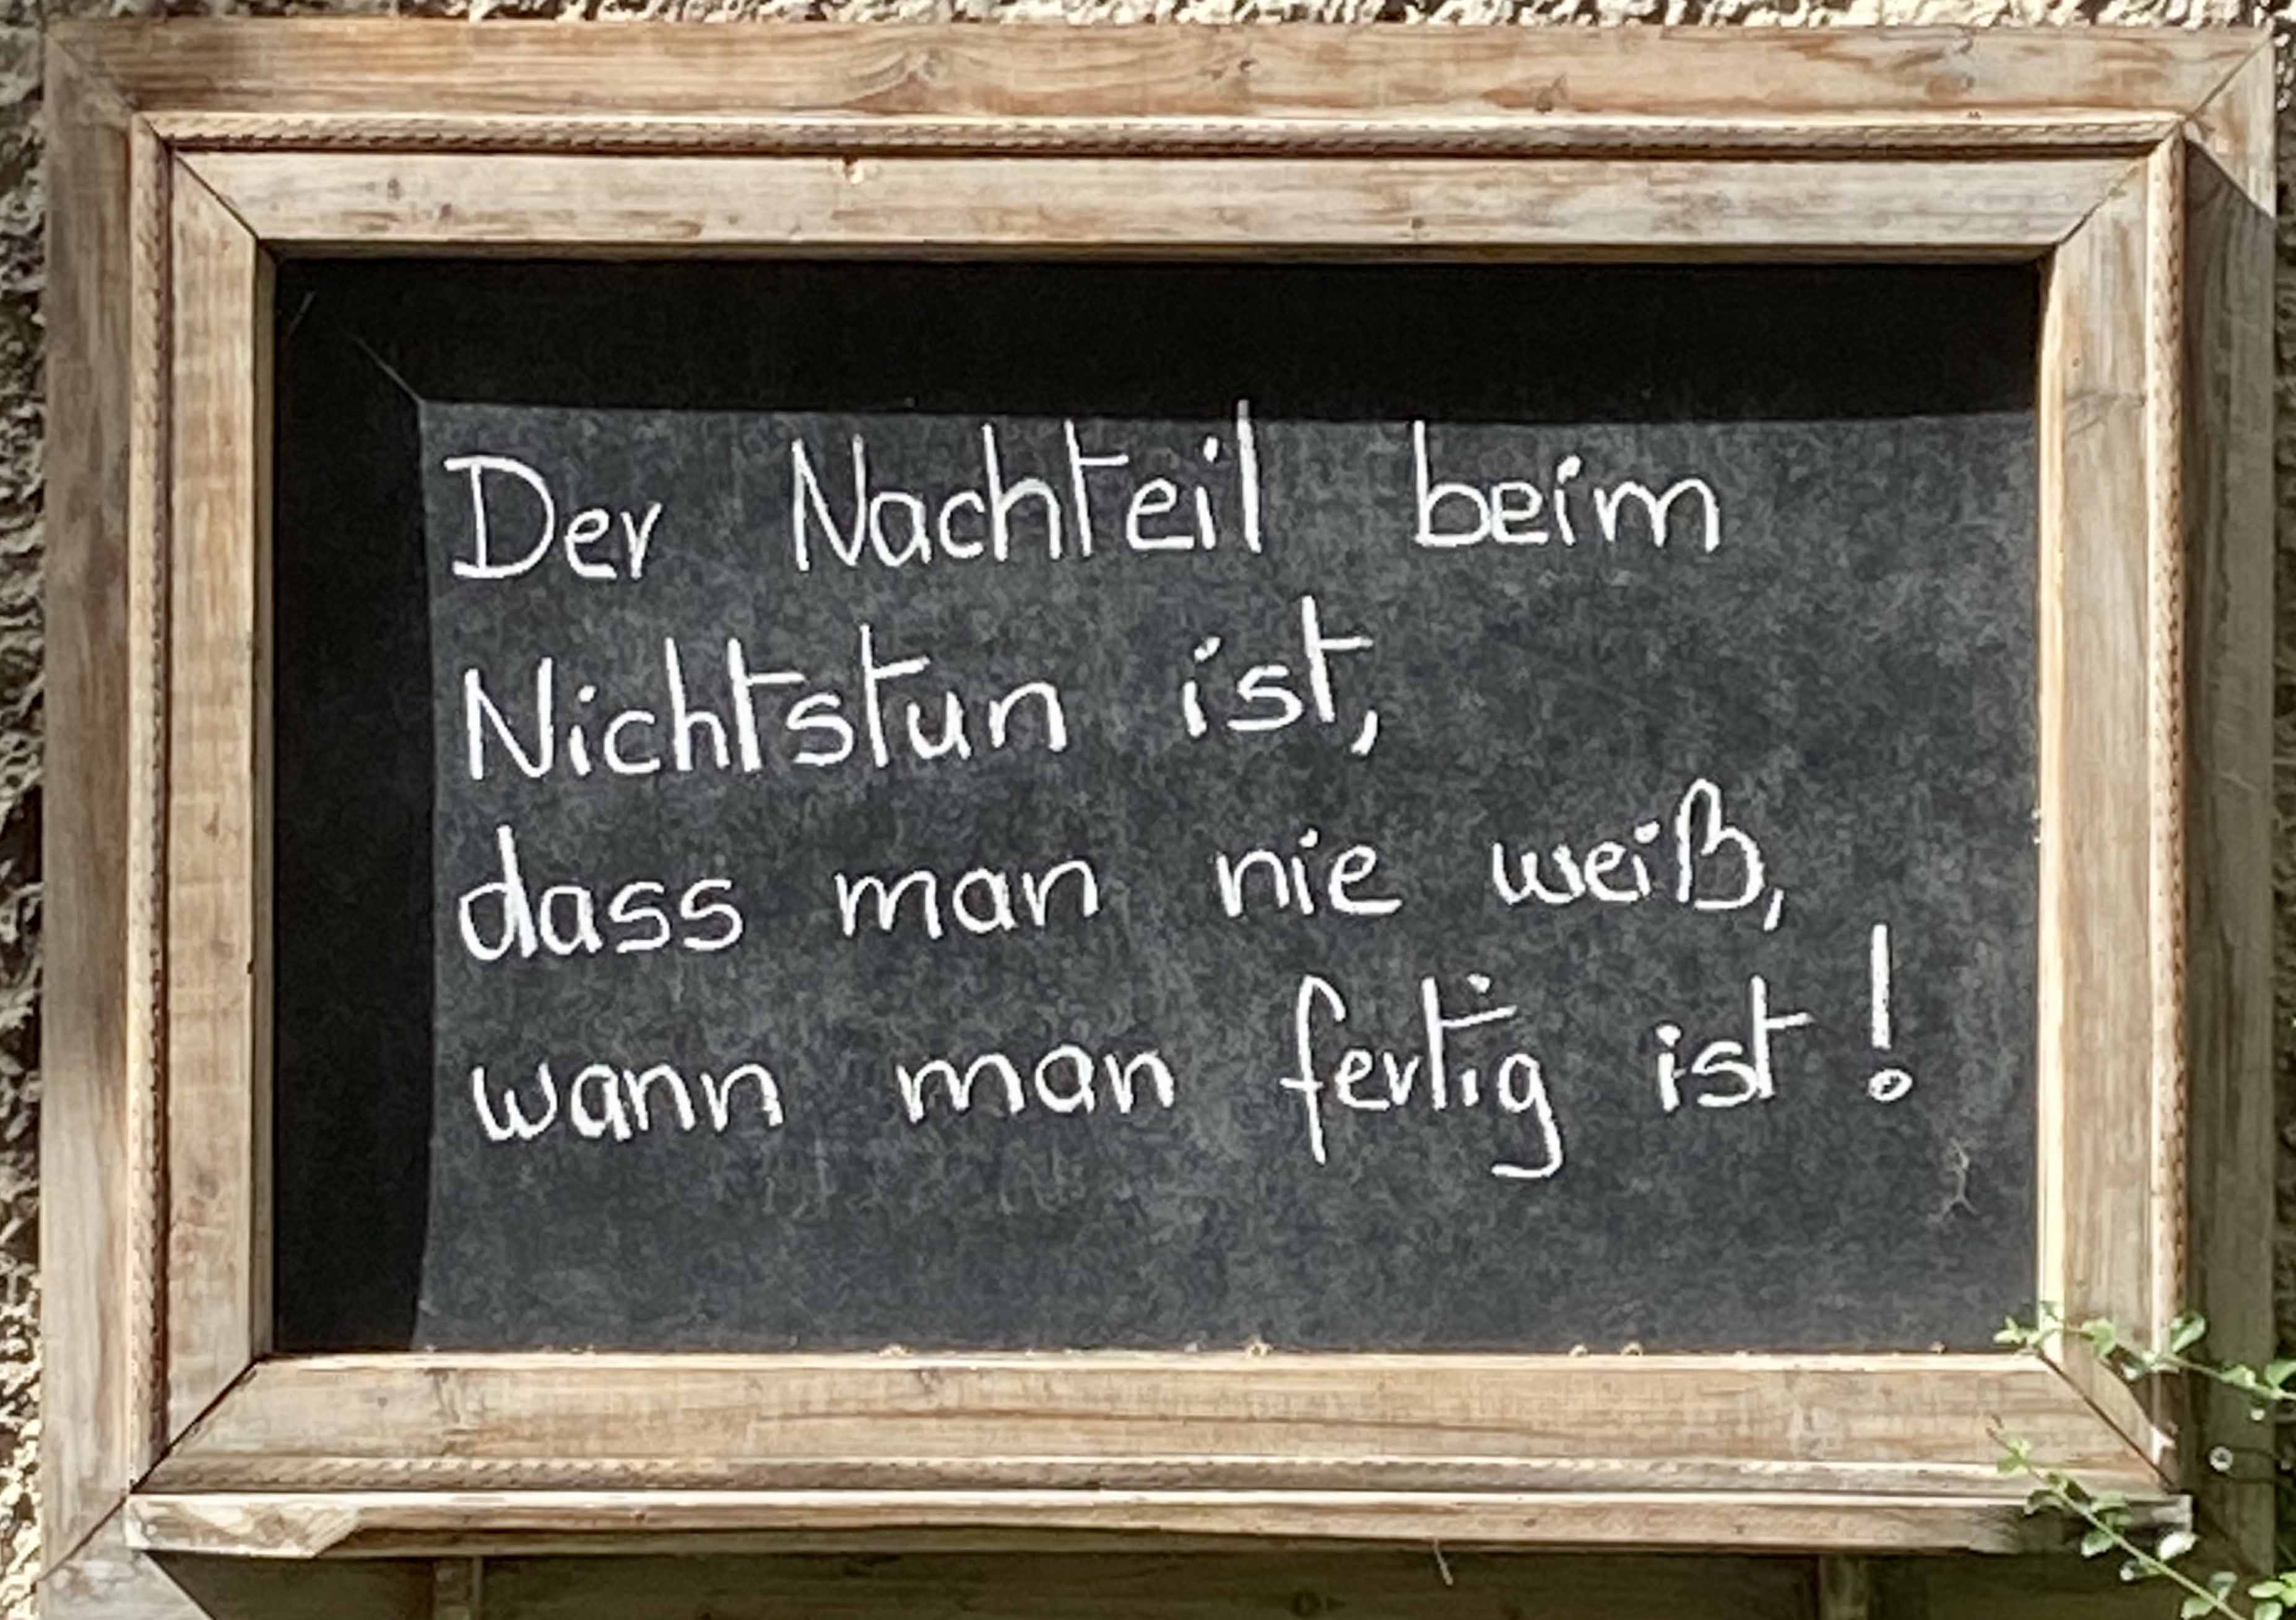 Der Nachteil beim
Nichtstun ist,
dass man nie weiß,
wann man fertig ist!